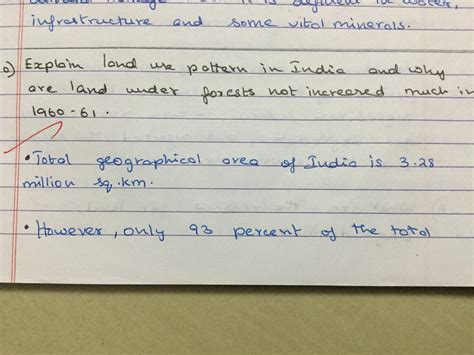 it is deficient in water,
infrastructure and some vital minerals.
o) Explain land use pattern in India and why
are land under forests not increased much in
1960-61.
• Total geographical area of India is 3.28
million sq.km.
• However, only 93 percent of the total